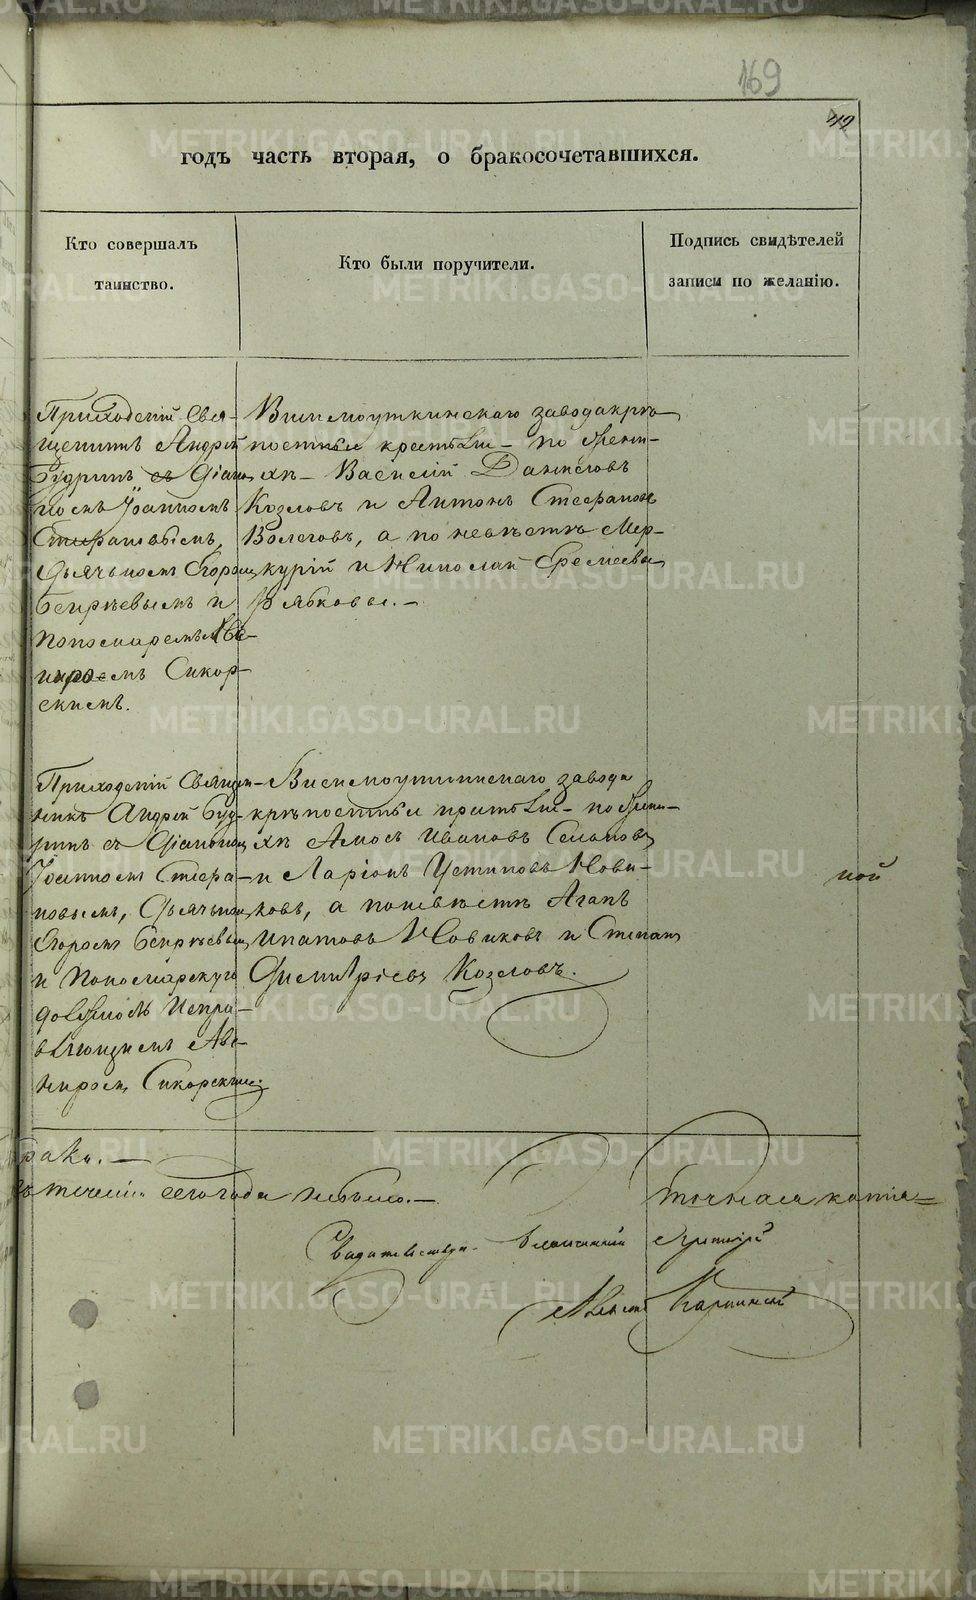 169
42
годъ часть вторая, о бракосочетавшихся.
Кто совершалъ
таинство.
Кто были поручители.
Подпись свидѣтелей
записи по желанію.
Приходскій Свя-
щенникъ Андрей
Будринъ съ Діако
номъ Іоанномъ
Стефановымъ,
Дьячькомъ Егоромъ
Бенръевымъ и
Пономаремъ Ав-
ниромъ Сикор-
скимъ.
Висимоуткинскаго завода крѣ-
постные крестьяне - по жени-
хѣ - Василій Даниловъ
Козловъ и Антонъ Стефановъ
Волеговъ, а по невѣстѣ Мер-
курій и Николай Еремеевы
Рябковы. -
Приходскій Священ-
никъ Андрей Буд-
ринъ съ Діакономъ
Іоанномъ Стефа-
новымъ, Дьячькомъ
Егоромъ
и Пономарскую
должность испра-
вляющимъ Аве-
ниромъ Сикорскимъ.
Висимоуткинскаго завода
крѣпостные крестьяне - по жени-
хѣ Амосъ Ивановъ
и Ларіонъ Устиновъ Нови-
ковъ, а по невѣстѣ Агапъ
Ипатовъ Новиковъ и Степанъ
Димитріевъ Козловъ.
ной
рака. -
въ теченіи сего года небыло. -
точная копія =
Свидѣтельств.
METRIKI.GASO-URAL.RU